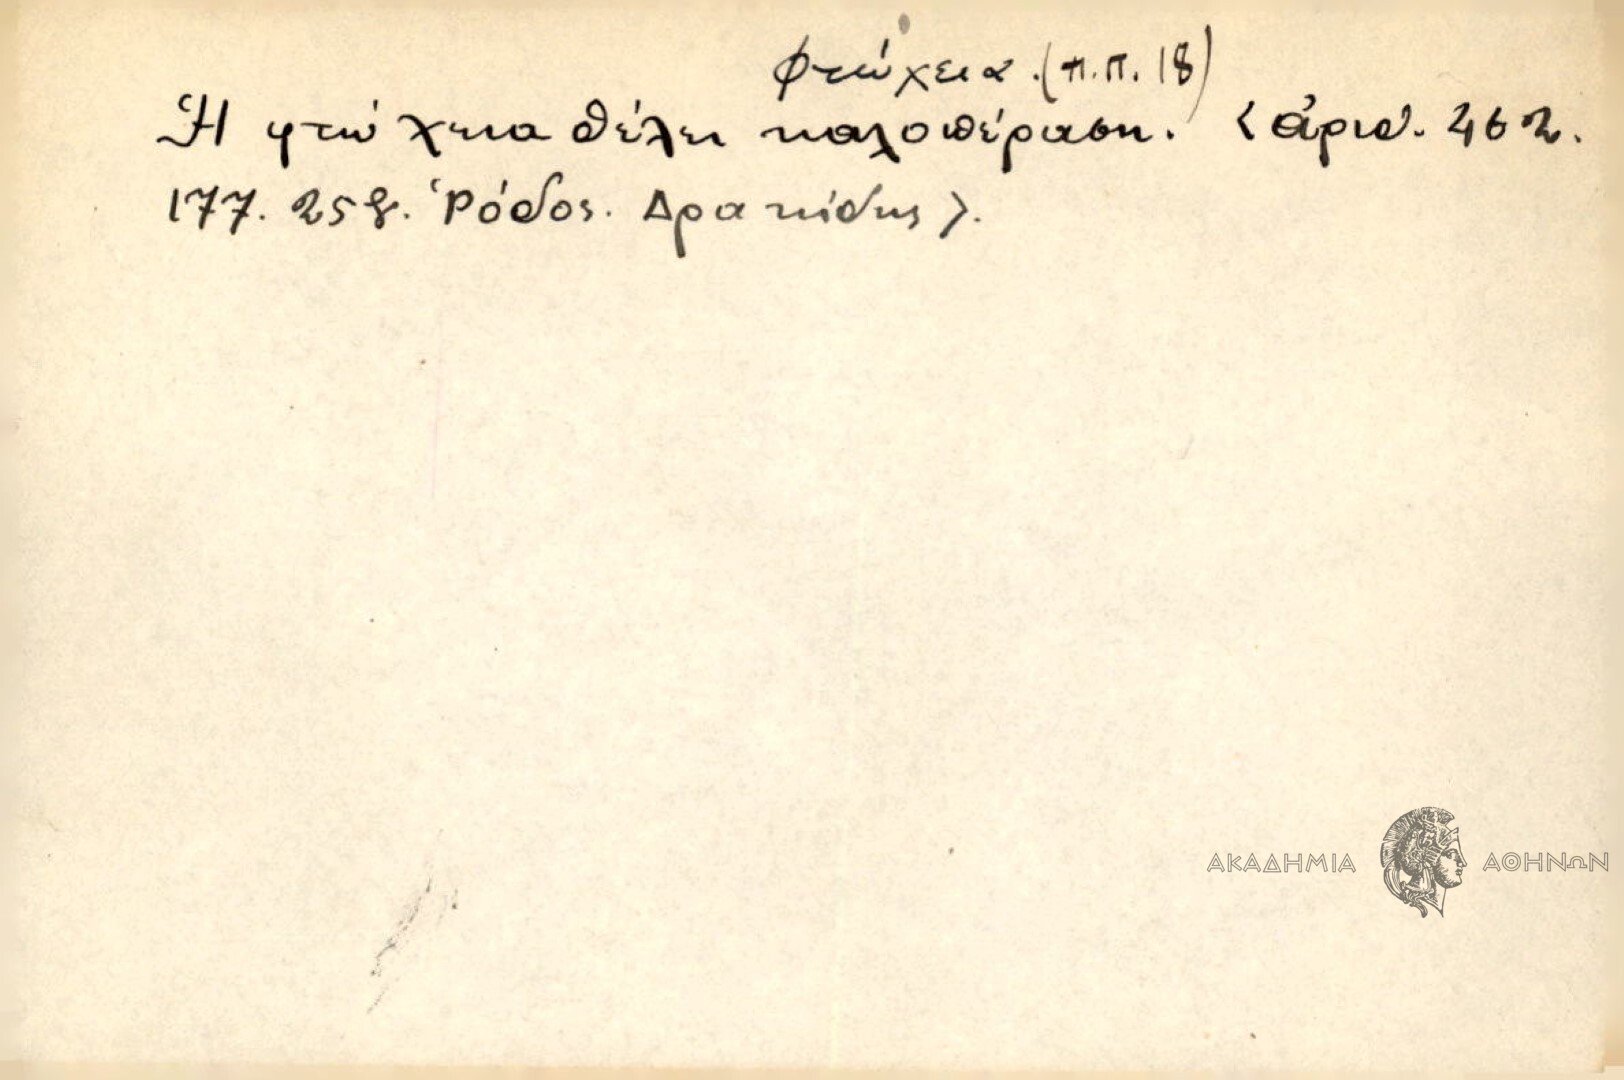 φτώχεια. (π.π. 18)
Ἡ φτώχεια θέλει καλοπέραση. <ἀριθ. 462.
177. 258. Ῥόδος. Δρακίδης>.
ΑΚΑΔΗΜΙΑ ΑΘΗΝΩΝ